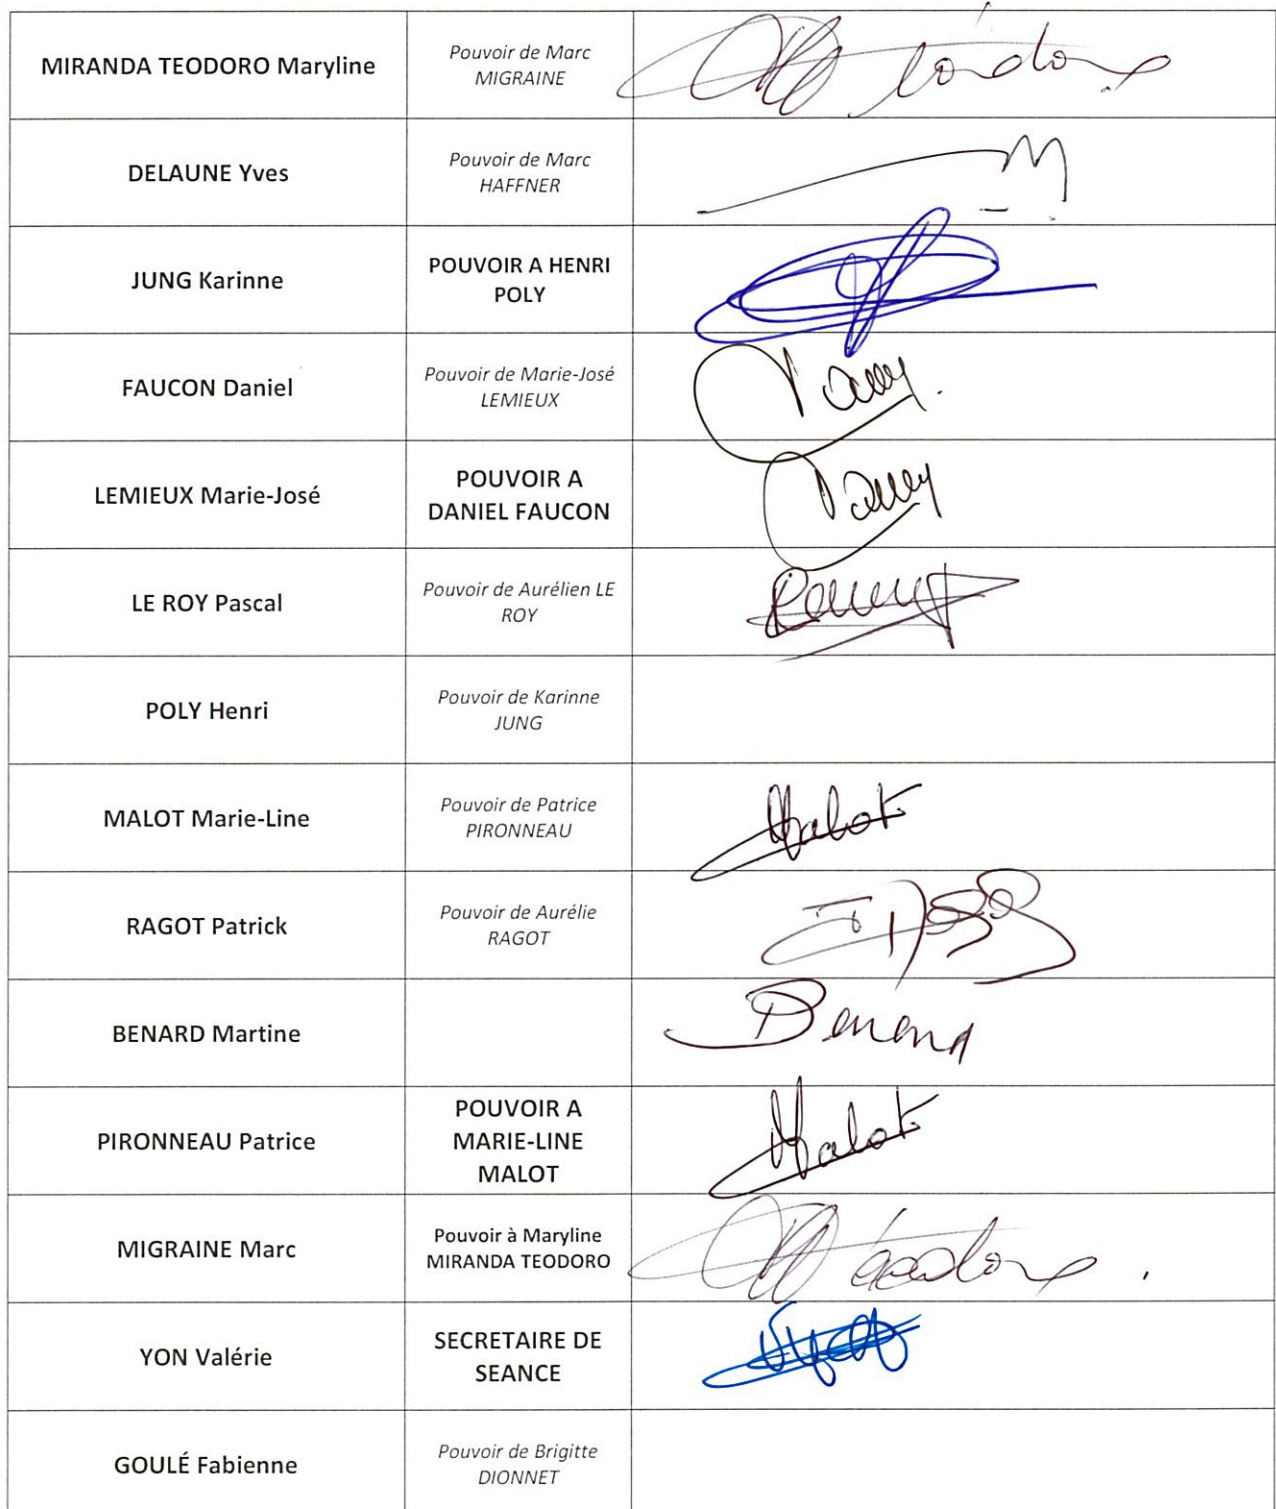 MIRANDA TEODORO Maryline
Pouvoir de Marc
MIGRAINE
DELAUNE Yves
Pouvoir de Marc
HAFFNER
JUNG Karinne
POUVOIR A HENRI
POLY
FAUCON Daniel
Pouvoir de Marie-José
LEMIEUX
LEMIEUX Marie-José
POUVOIR A
DANIEL FAUCON
LE ROY Pascal
Pouvoir de Aurélien LE
ROY
POLY Henri
Pouvoir de Karinne
JUNG
MALOT Marie-Line
Pouvoir de Patrice
PIRONNEAU
Malot
RAGOT Patrick
Pouvoir de Aurélie
RAGOT
BENARD Martine
Benard
PIRONNEAU Patrice
POUVOIR A
MARIE-LINE
MALOT
Malot
MIGRAINE Marc
Pouvoir à Maryline
MIRANDA TEODORO
YON Valérie
SECRETAIRE DE
SEANCE
GOULÉ Fabienne
Pouvoir de Brigitte
DIONNET